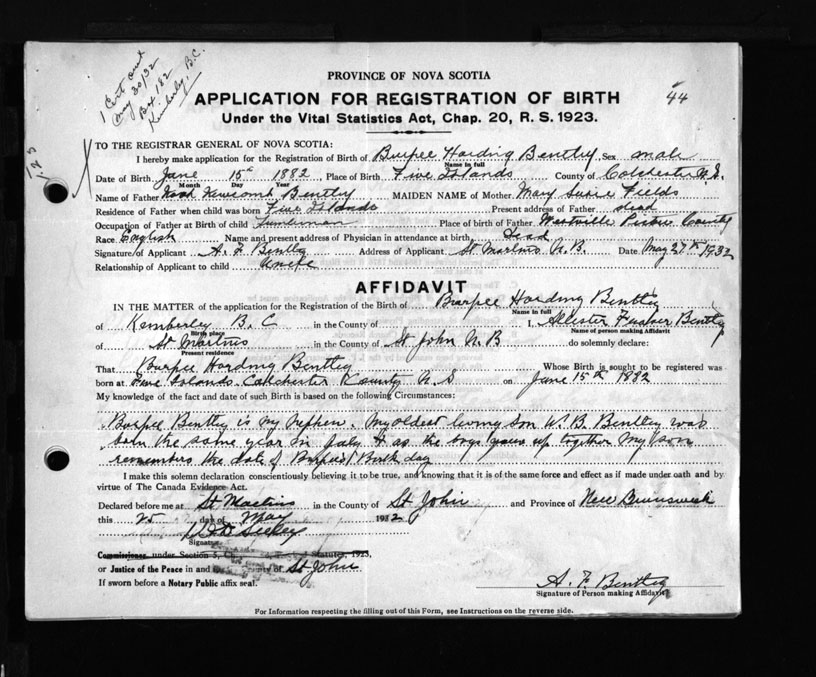 1 Cert out
May 30/32
Box 182
Kimberley, B.C.
PROVINCE OF NOVA SCOTIA
APPLICATION FOR REGISTRATION OF BIRTH
44
Under the Vital Statistics Act, Chap. 20, R. S. 1923.
TO THE REGISTRAR GENERAL OF NOVA SCOTIA:
I hereby make application for the Registration of Birth of Burpee Harding Bentley Sex male
Name in full
Date of Birth June 15th 1882 Place of Birth Five Islands County of Colchester N.S.
Month Day Year
Name of Father Newcomb Bentley MAIDEN NAME of Mother Mary Susie Fields
Residence of Father when child was born Five Islands Present address of Father dead
Occupation of Father at Birth of child Lumberman Place of birth of Father Westville Pictou County
Race English Name and present address of Physician in attendance at birth Dead
Signature of Applicant A. F. Bentley Address of Applicant St Martins N.B. Date May 27th 1932
Relationship of Applicant to child Uncle
AFFIDAVIT
IN THE MATTER of the application for the Registration of the Birth of Burpee Harding Bentley
Name in full
of Kimberley B.C in the County of I, Allester Fisher Bentley
Birth place Name of person making Affidavit
of St Martins in the County of St John N.B do solemnly declare:
Present residence
That Burpee Harding Bentley Whose Birth is sought to be registered was
born at Five Islands Colchester County N.S on June 15th 1882
My knowledge of the fact and date of such Birth is based on the following Circumstances:
Burpee Bentley is my Nephew. My oldest living Son W. B. Bentley was
born the same year in July & as the boys grew up together My son
remembers the date of Burpee's Birth day
I make this solemn declaration conscientiously believing it to be true, and knowing that it is of the same force and effect as if made under oath and by
virtue of The Canada Evidence Act.
Declared before me at St Martins in the County of St John and Province of New Brunswick
this 25 day of May 1932
Signature
Commissioner, under Section 5, Statutes, 1923,
or Justice of the Peace in and County of St John
If sworn before a Notary Public affix seal.
A. F. Bentley
Signature of Person making Affidavit
For Information respecting the filling out of this Form, see Instructions on the reverse side.